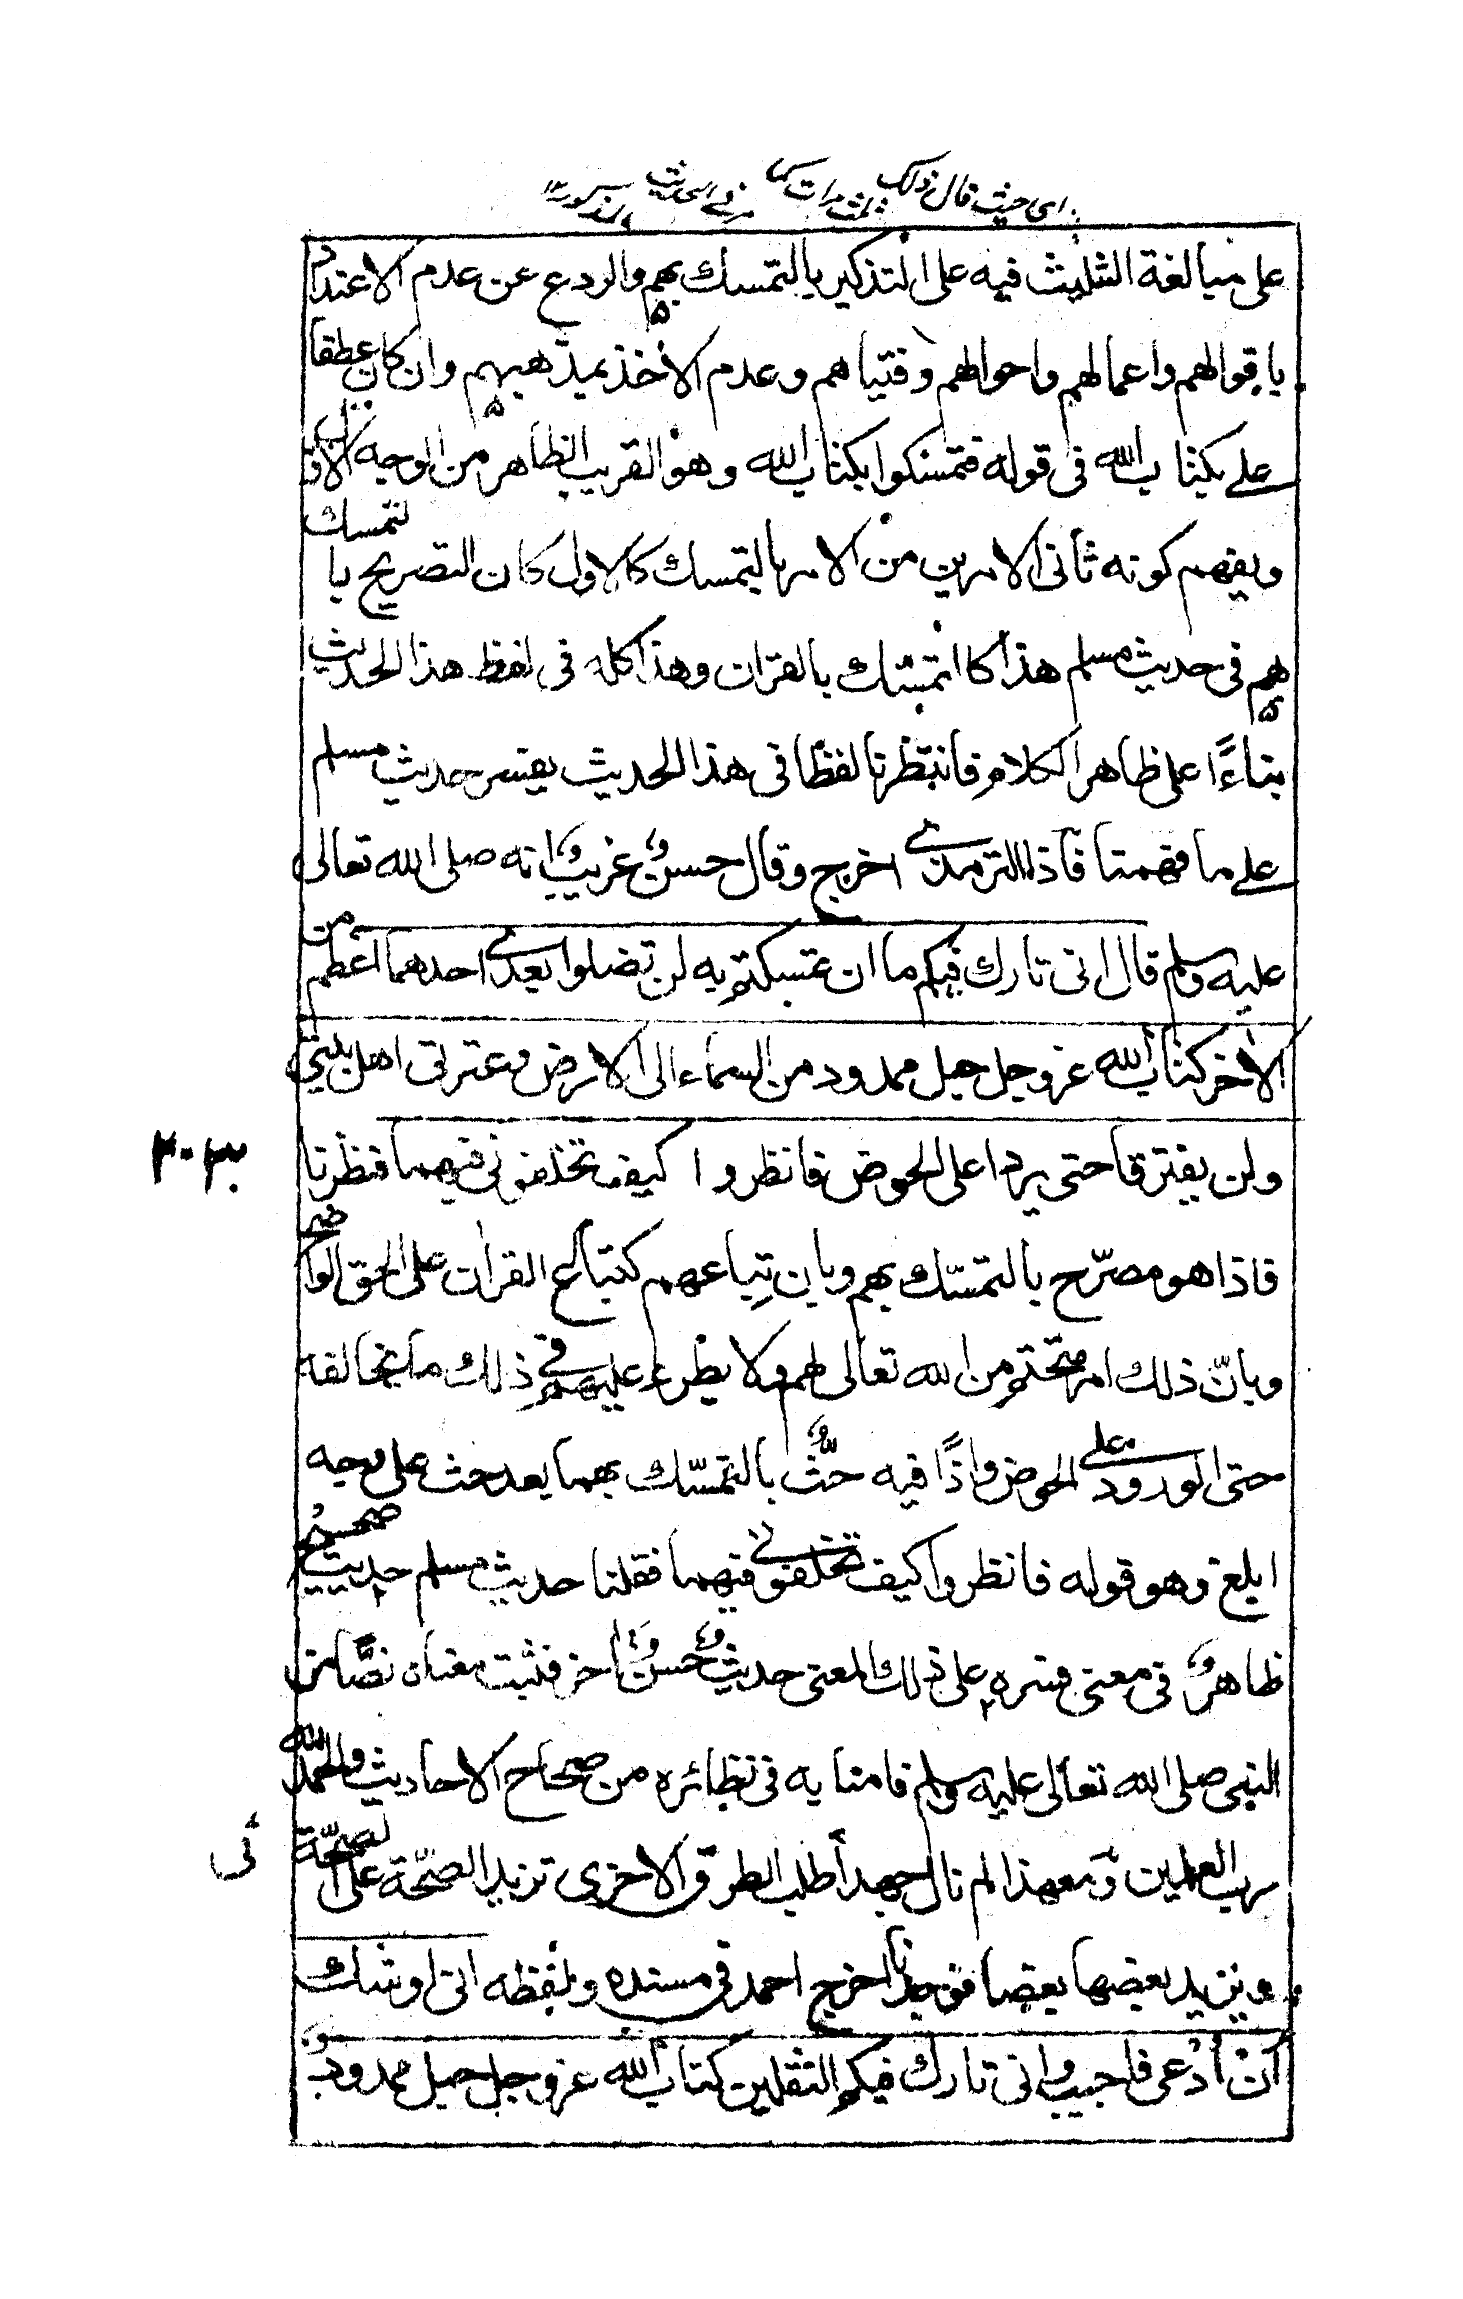 اى حيث قال ذلك ثلث مرات كما
على مبالغة التثليث فيه على التذكير بالتمسك بهم والردع عن عدم الاعتداد
باقوالهم واعمالهم واحوالهم وفتياهم وعدم الأخذ بمذهبهم وان كان عطفا
على بكتاب الله فى قوله فتمسكوا بكتاب الله وهو القريب الظاهر من الوجيه الاول
ويفهم كونه ثانى الامرين من الامر بالتمسك كالاول كان التصريح بالتمسك
بهم فى حديث مسلم هذا كالتمسّك بالقران وهذا كله فى لفظ هذا الحديث
بناءً على ظاهر الكلام فانتظرنا لفظا فى هذا الحديث يفسر حديث مسلم
على ما فهمنا فاذا الترمذى اخرج وقال حسنٌ غريبٌ انه صلى الله تعالى
عليه وسلم قال انى تارك فيكم ما ان تمسكتم به لن تضلوا بعدى احدهما اعظم من
الأخر كتاب الله عز وجل حبل ممدود من السماء الى الارض وعترتى اهل بيتى
ولن يفترقا حتى يردا على الحوض فانظروا كيف تخلفونى فيهما فنظرنا
٢٠٣
فاذا هو مصرّح بالتمسّك بهم وبان تباعهم كتباع القران على الحق الواضح
وبانّ ذلك امر متحتم من الله تعالى لهم ولا يطرء عليهم فى ذلك ما يخالفه
حتى الورود على الحوض واذًا فيه حثٌّ بالتمسّك بهما بعد حث على وجه
ابلغ وهو قوله فانظروا كيف تخلفونى فيهما فقلنا حديث مسلم حديث صحيح
ظاهرٌ فى معنى فسره على ذلك المعنى حديثٌ حسنٌ اخر فثبت معناه نصًّا من
النبى صلى الله تعالى عليه وسلم فامنا به فى نظائره من صحاح الاحاديث والحمد لله
رب العلمين ومع هذا لم نال جهدا طلب الطرق الاخرى تزيد الصحّة على الصحّة
ويزيد بعضها بعضا فوجدنا اخرج احمد فى مسنده ولفظه انى اوشك
أنْ أُدعى فاجيب وانى تارك فيكم الثقلين كتاب الله عز وجل حبل ممدودٌ